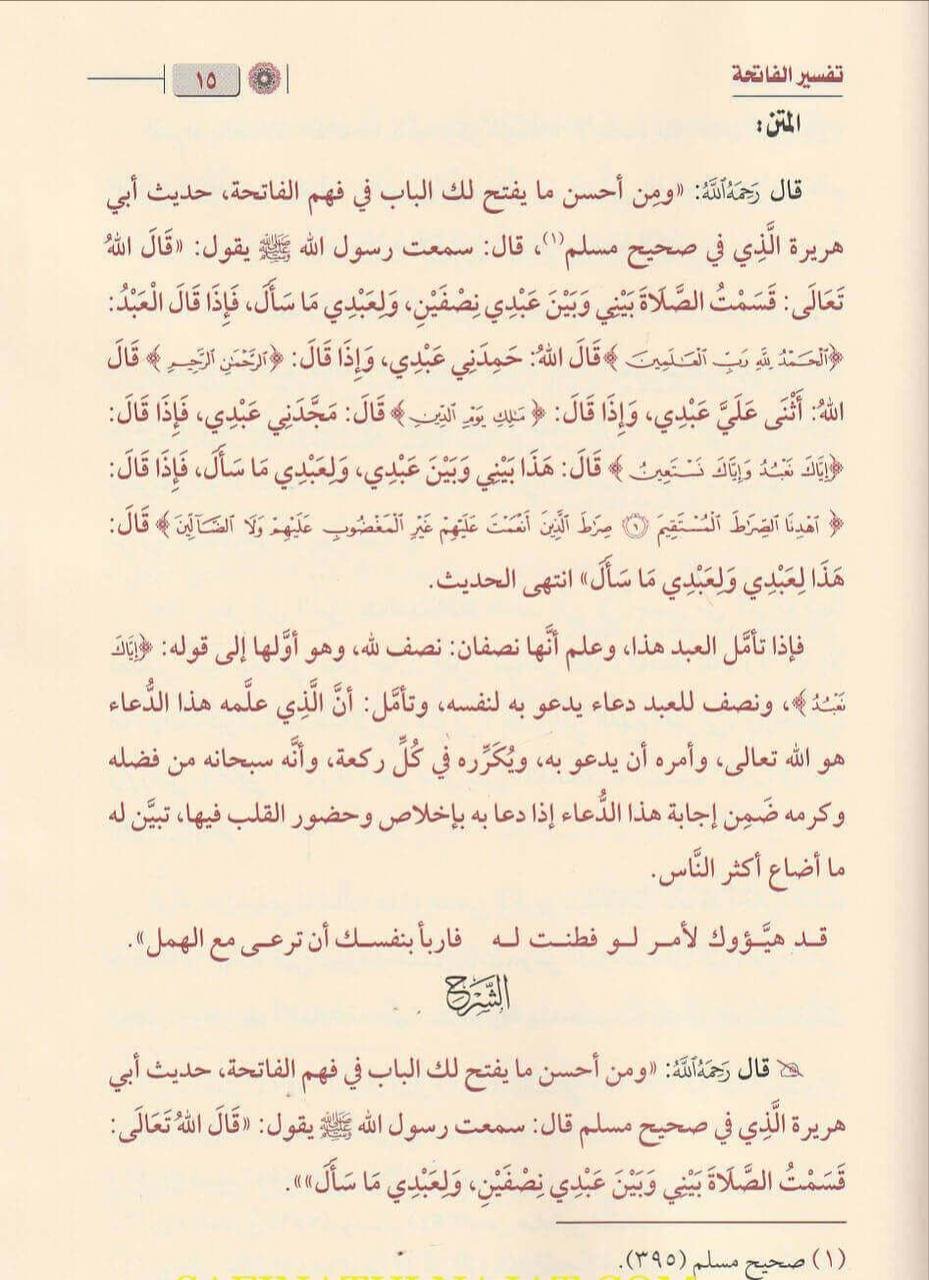 تفسير الفاتحة
١٥
المتن:
قال رَحِمَهُ ٱللَّهُ: «ومِن أحسن ما يفتح لك الباب في فهم الفاتحة، حديث أبي
هريرة الَّذِي في صحيح مسلم(١)، قال: سمعت رسول الله ﷺ يقول: «قَالَ اللهُ
تَعَالَى: قَسَمْتُ الصَّلَاةَ بَيْنِي وَبَيْنَ عَبْدِي نِصْفَيْنِ، وَلِعَبْدِي مَا سَأَلَ، فَإِذَا قَالَ الْعَبْدُ:
﴿ٱلْحَمْدُ لِلَّهِ رَبِّ ٱلْعَٰلَمِينَ﴾ قَالَ اللهُ: حَمِدَنِي عَبْدِي، وَإِذَا قَالَ: ﴿ٱلرَّحْمَٰنِ ٱلرَّحِيمِ﴾ قَالَ
اللهُ: أَثْنَى عَلَيَّ عَبْدِي، وَإِذَا قَالَ: ﴿مَٰلِكِ يَوْمِ ٱلدِّينِ﴾ قَالَ: مَجَّدَنِي عَبْدِي، فَإِذَا قَالَ:
﴿إِيَّاكَ نَعْبُدُ وَإِيَّاكَ نَسْتَعِينُ﴾ قَالَ: هَذَا بَيْنِي وَبَيْنَ عَبْدِي، وَلِعَبْدِي مَا سَأَلَ، فَإِذَا قَالَ:
﴿ٱهْدِنَا ٱلصِّرَٰطَ ٱلْمُسْتَقِيمَ ٦ صِرَٰطَ ٱلَّذِينَ أَنْعَمْتَ عَلَيْهِمْ غَيْرِ ٱلْمَغْضُوبِ عَلَيْهِمْ وَلَا ٱلضَّآلِّينَ﴾ قَالَ:
هَذَا لِعَبْدِي وَلِعَبْدِي مَا سَأَلَ» انتهى الحديث.
فإذا تأمَّل العبد هذا، وعلم أنَّها نصفان: نصف لله، وهو أوَّلها إلى قوله: ﴿إِيَّاكَ
نَعْبُدُ﴾، ونصف للعبد دعاء يدعو به لنفسه، وتأمَّل: أنَّ الَّذِي علَّمه هذا الدُّعاء
هو الله تعالى، وأمره أن يدعو به، ويُكَرِّره في كُلِّ ركعة، وأنَّه سبحانه من فضله
وكرمه ضَمِن إجابة هذا الدُّعاء إذا دعا به بإخلاص وحضور القلب فيها، تبيَّن له
ما أضاع أكثر النَّاس.
قد هيَّؤوك لأمر لو فطنت له فاربأ بنفسك أن ترعى مع الهمل».
الشَّرح
قال رَحِمَهُ ٱللَّهُ: «ومن أحسن ما يفتح لك الباب في فهم الفاتحة، حديث أبي
هريرة الَّذِي في صحيح مسلم قال: سمعت رسول الله ﷺ يقول: «قَالَ اللهُ تَعَالَى:
قَسَمْتُ الصَّلَاةَ بَيْنِي وَبَيْنَ عَبْدِي نِصْفَيْنِ، وَلِعَبْدِي مَا سَأَلَ»».
(١) صحيح مسلم (٣٩٥).